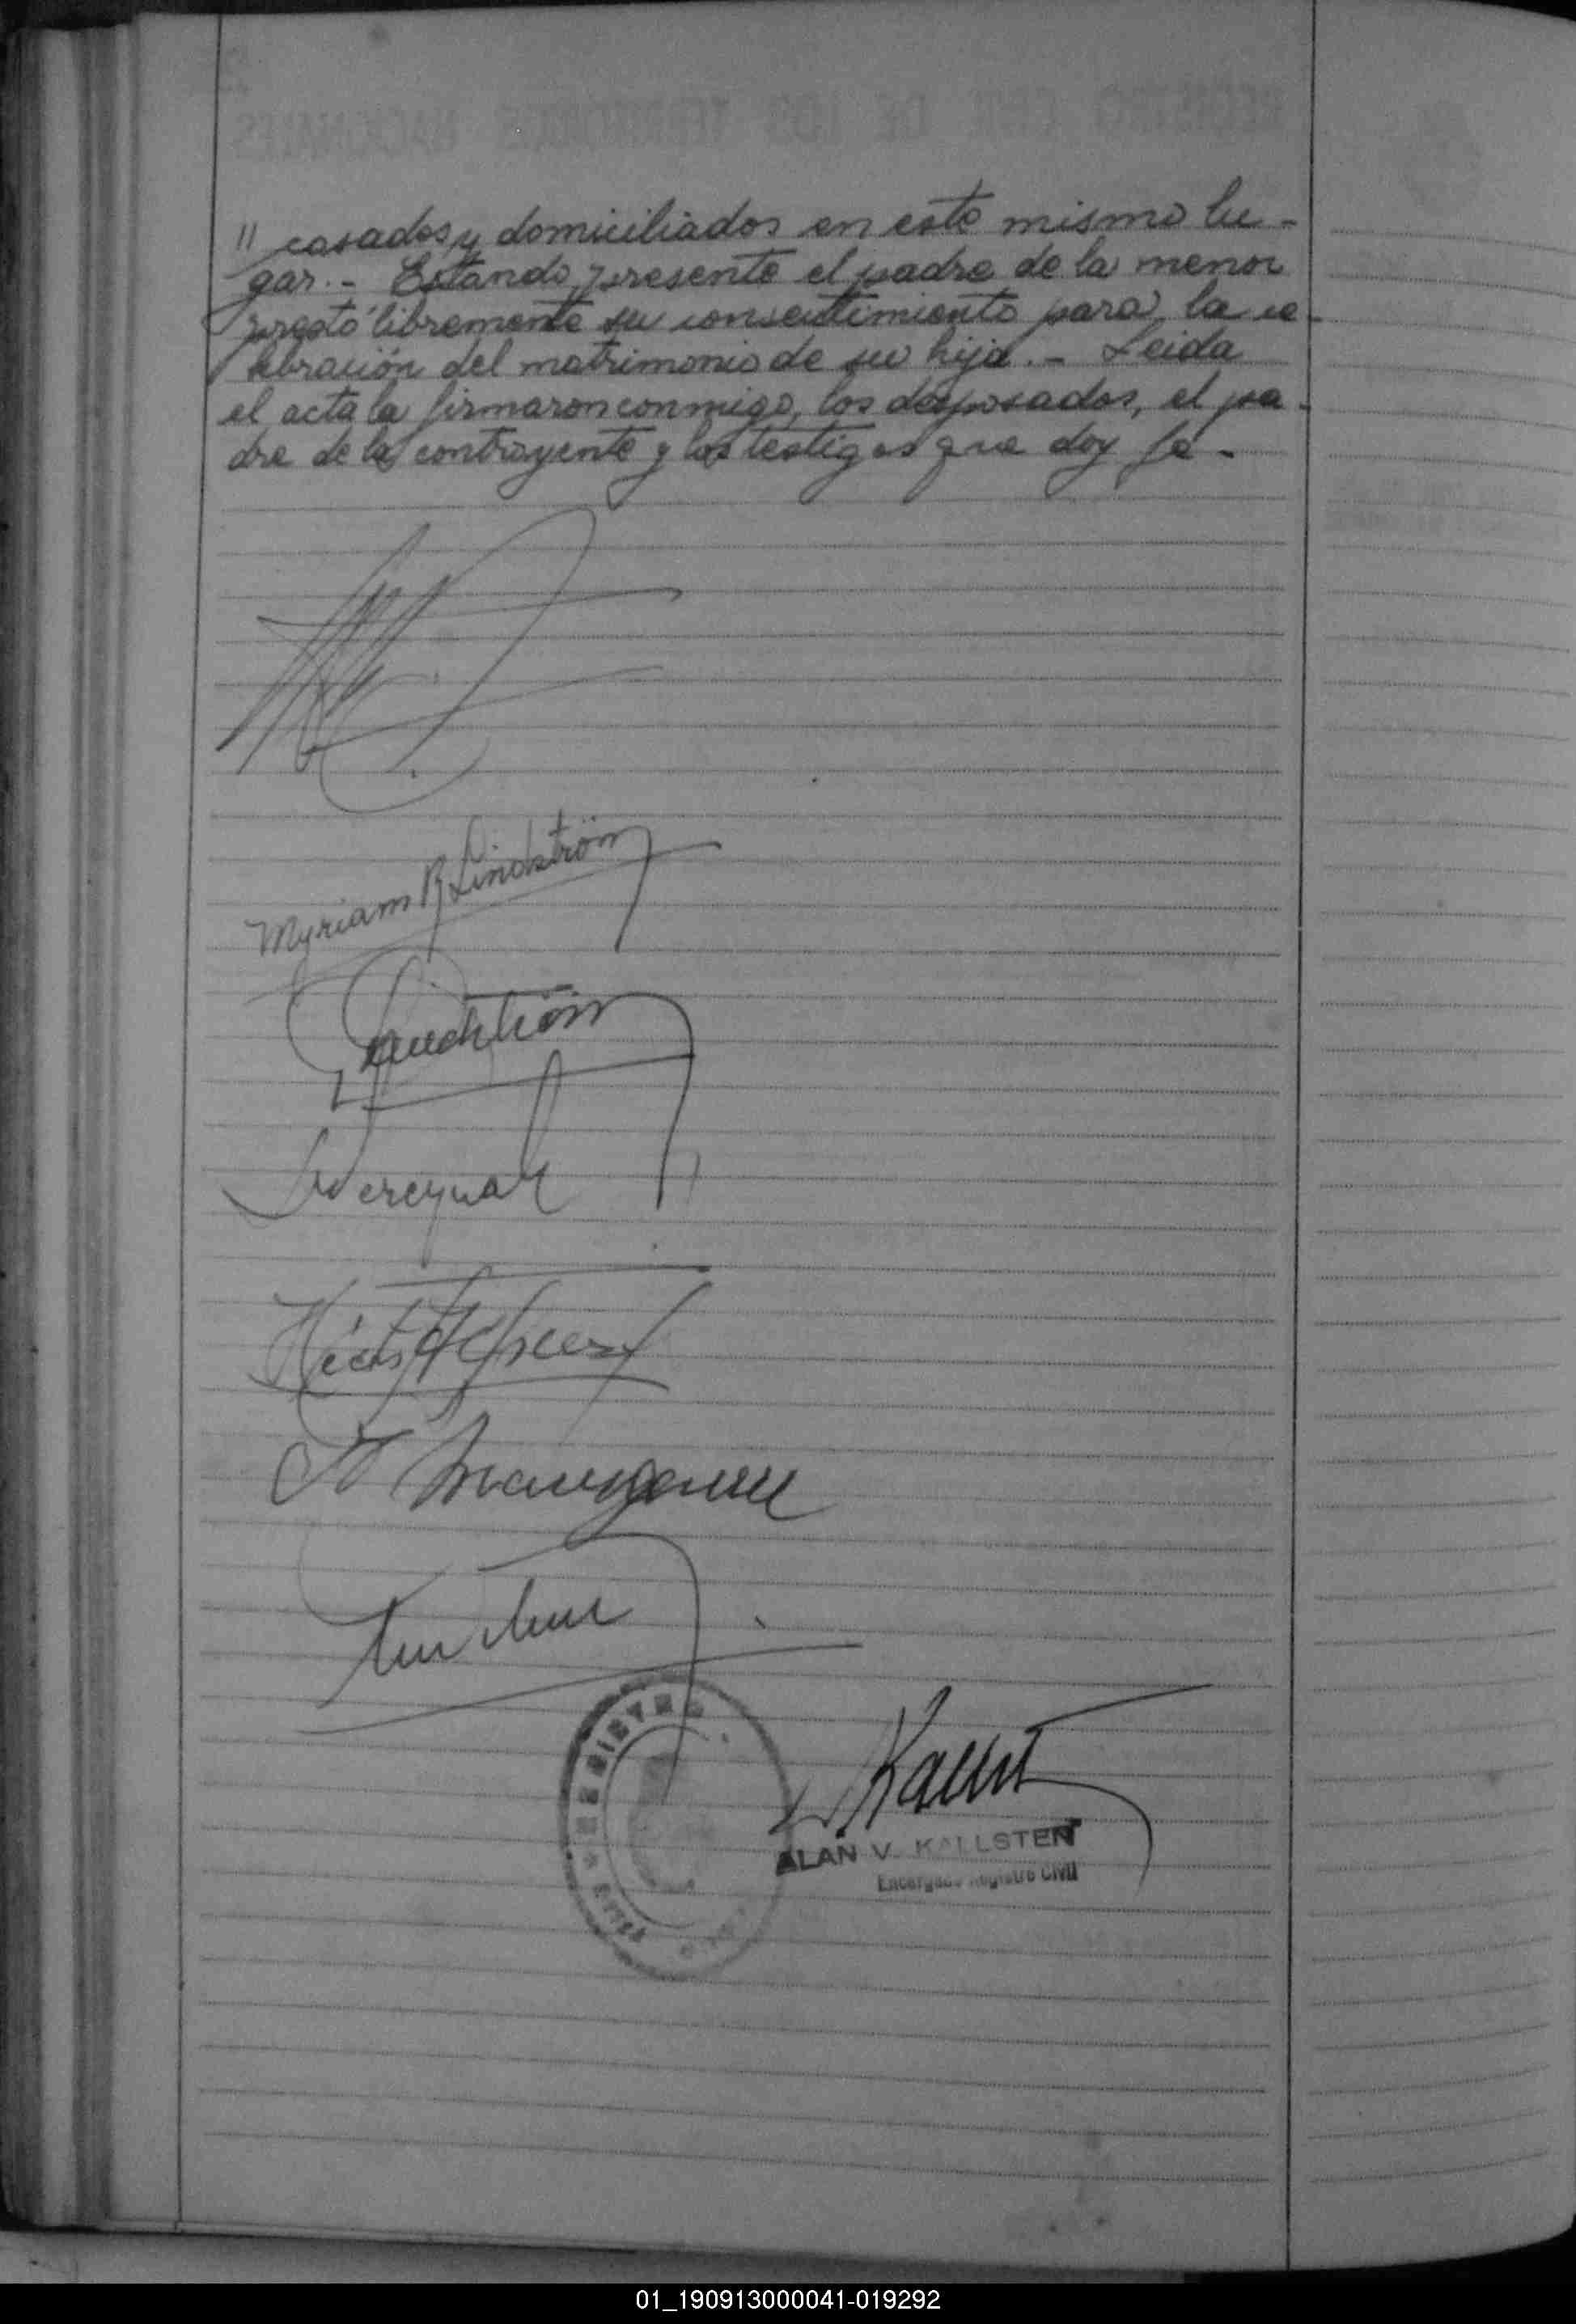 " casados y domiciliados en este mismo lu-
gar.- Estando presente el padre de la menor
prestó libremente su consentimiento para la ce-
lebración del matrimonio de su hija.- Leida
el acta la firmaron conmigo, los desposados, el pa-
dre de la contrayente y los testigos que doy fe.-
Myriam R Lindström
Lindström
Kallst
ALAN V. KALLSTEN
Encargado Registro Civil
01_190913000041-019292